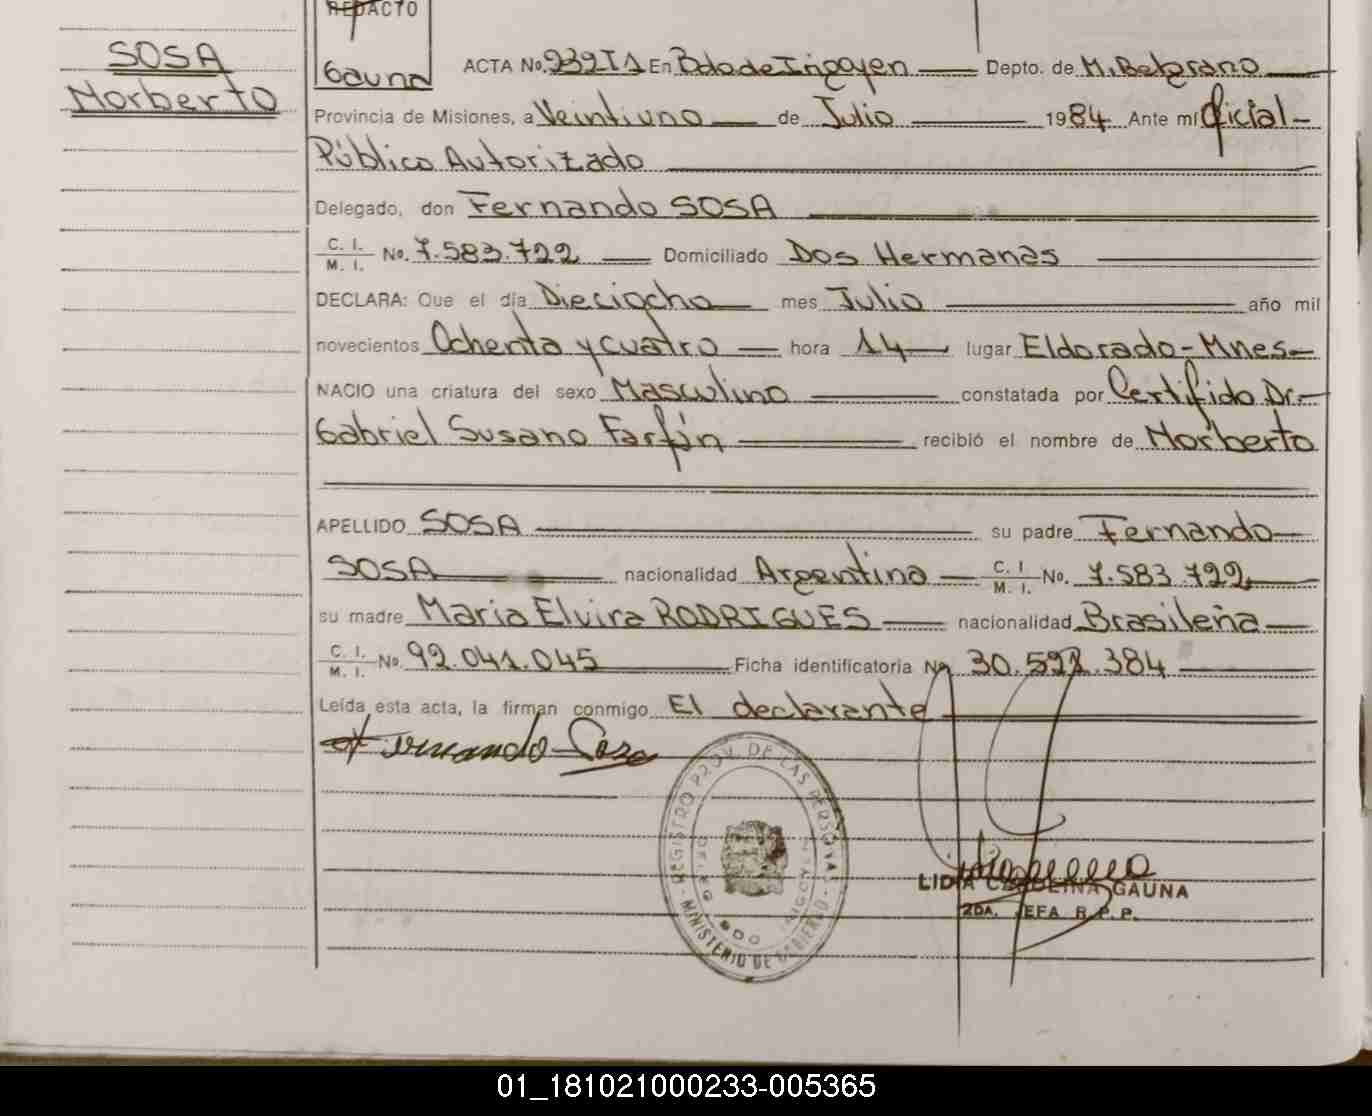 SOSA
Norberto
REDACTO
Gauna
ACTA No. 239 T1 En Bdo de Irigoyen Depto. de M. Belgrano
Provincia de Misiones, a Veintiuno de Julio 1984 Ante mí Oficial
Público Autorizado
Delegado, don Fernando SOSA
C. I. / M. I. No. 7.583.722 Domiciliado Dos Hermanas
DECLARA: Que el día Dieciocho mes Julio año mil
novecientos Ochenta y cuatro hora 14 lugar Eldorado-Mnes
NACIO una criatura del sexo Masculino constatada por Certifido Dr.
Gabriel Susano Farfán recibió el nombre de Norberto
APELLIDO SOSA su padre Fernando
SOSA nacionalidad Argentino C. I / M. I. No. 7.583.722
su madre María Elvira RODRIGUES nacionalidad Brasileña
C. I. / M. I. No. 92.041.045 Ficha identificatoria No 30.592.384
Leída esta acta, la firman conmigo El declarante
Fernando Sosa
REGISTRO PROV. DE LAS PERSONAS
MINISTERIO DE GOBIERNO
BDO IRIGOYEN
LIDIA CAROLINA GAUNA
2DA. JEFA R.P.P.
01_181021000233-005365